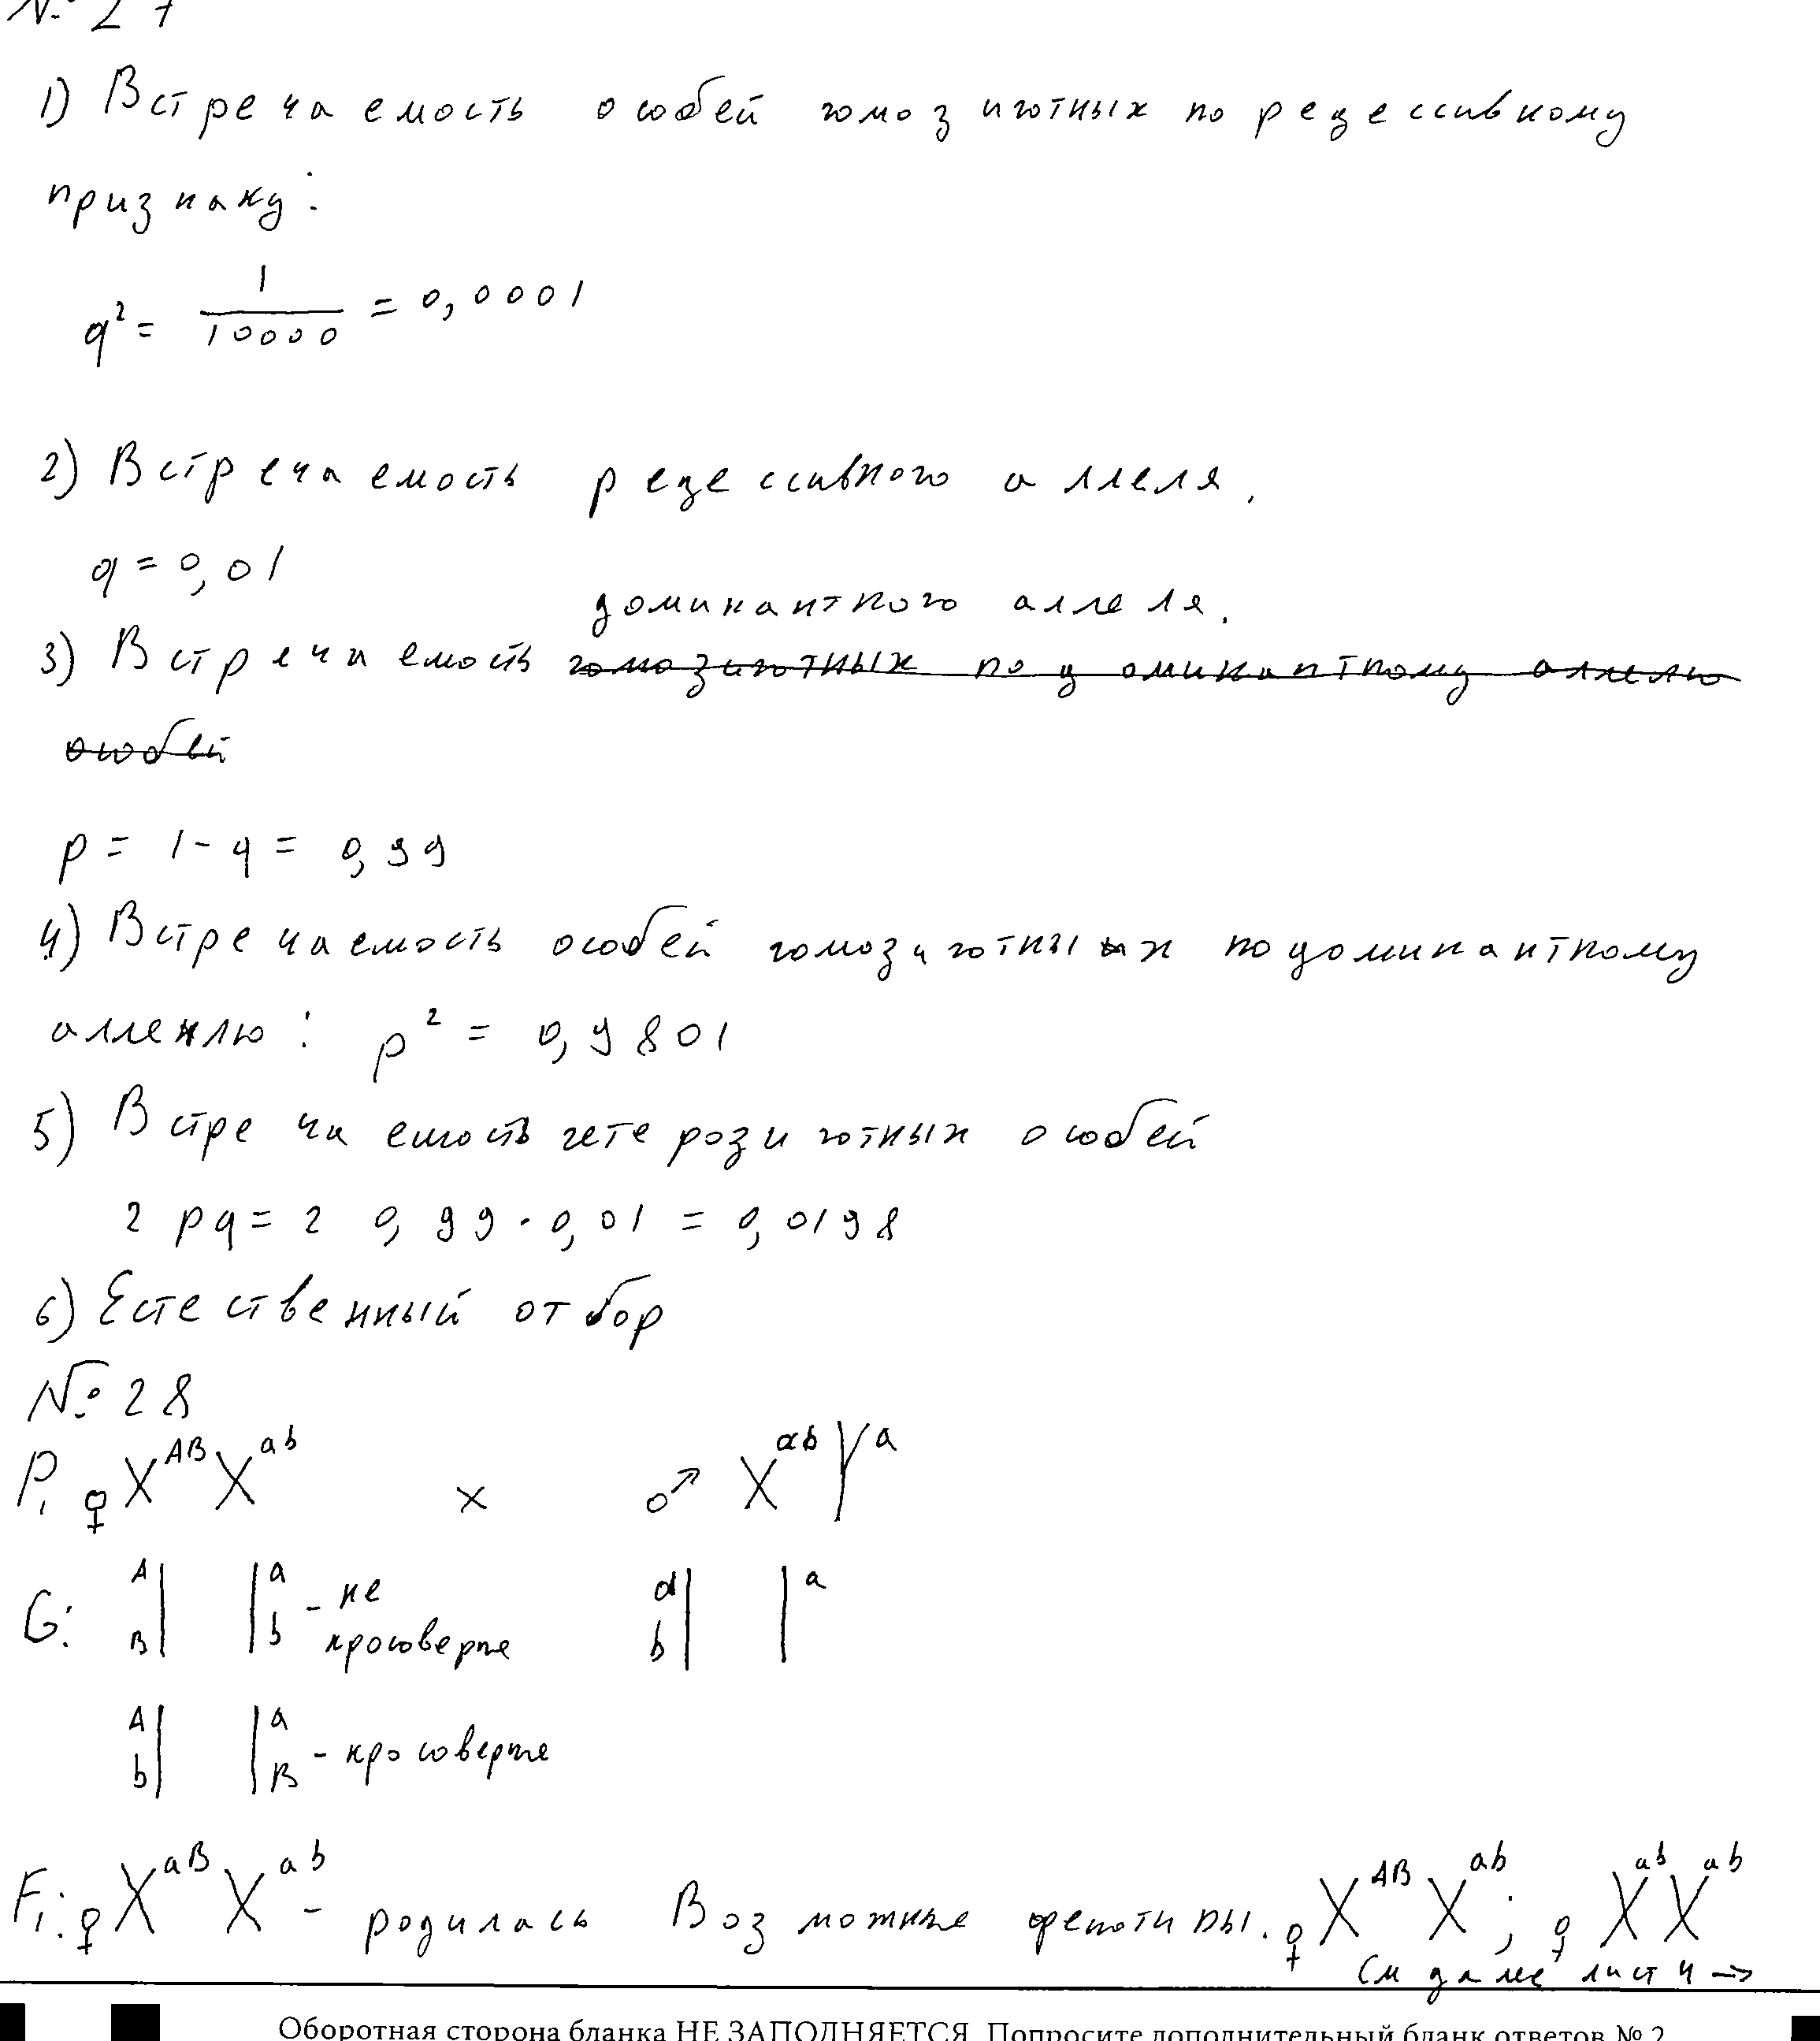 № 27
1) Встречаемость особей гомозиготных по рецессивному
признаку:
q² = 1/10000 = 0,0001
2) Встречаемость рецессивного аллеля.
q = 0,01
доминантного аллеля.
3) Встречаемость гомозиготных по доминантному аллелю
особей
p = 1 - q = 0,99
4) Встречаемость особей гомозиготных по доминантному
аллелю: p² = 0,9801
5) Встречаемость гетерозиготных особей
2 pq = 2 0,99 · 0,01 = 0,0198
6) Естественный отбор
№ 28
P₁ ♀ X^AB X^ab × ♂ X^ab Y^a
G: A B | | a b - не кросоверные a b | | a
A b | | a B - кросоверные
F₁: ♀ X^aB X^ab - родилась Возможные фенотипы. ♀ X^AB X^ab; ♀ X^ab X^ab
См далее лист 4 →
Оборотная сторона бланка НЕ ЗАПОЛНЯЕТСЯ. Попросите дополнительный бланк ответов № 2